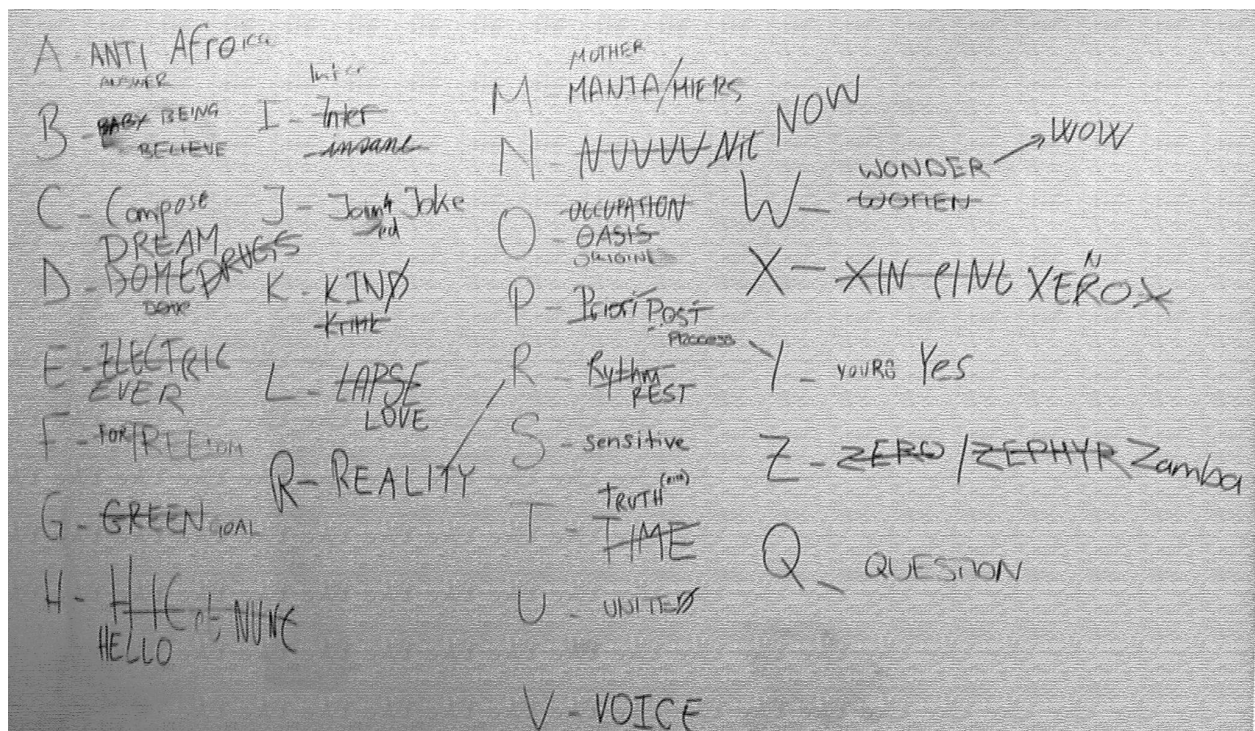 A - ANTI Africa
ANSWER
B - BABY BEING
BELIEVE
C - Compose
DREAM
D - DOME DRUGS
DOME
E - ELECTRIC
EVER
F - FOR/FREEDOM
G - GREEN GOAL
H - HIC et NUNC
HELLO
Inter
I - Inter
insane
J - Joint Joke
ed
K - KIND
L - LAPSE
LOVE
R - REALITY
MOTHER
M - MANIA/HIERS
N - NUVVU Nit NOW
OCCUPATION
O - OASIS
ORIGINE
P - Priori POST
Process
R - Rythm
REST
S - sensitive
TRUTH
T - TIME
U - UNITED
V - VOICE
WONDER → WOW
W - WOMEN
N
X - XIN PING XEROX
Y - YOURS Yes
Z - ZERO / ZEPHYR Zamba
Q - QUESTION